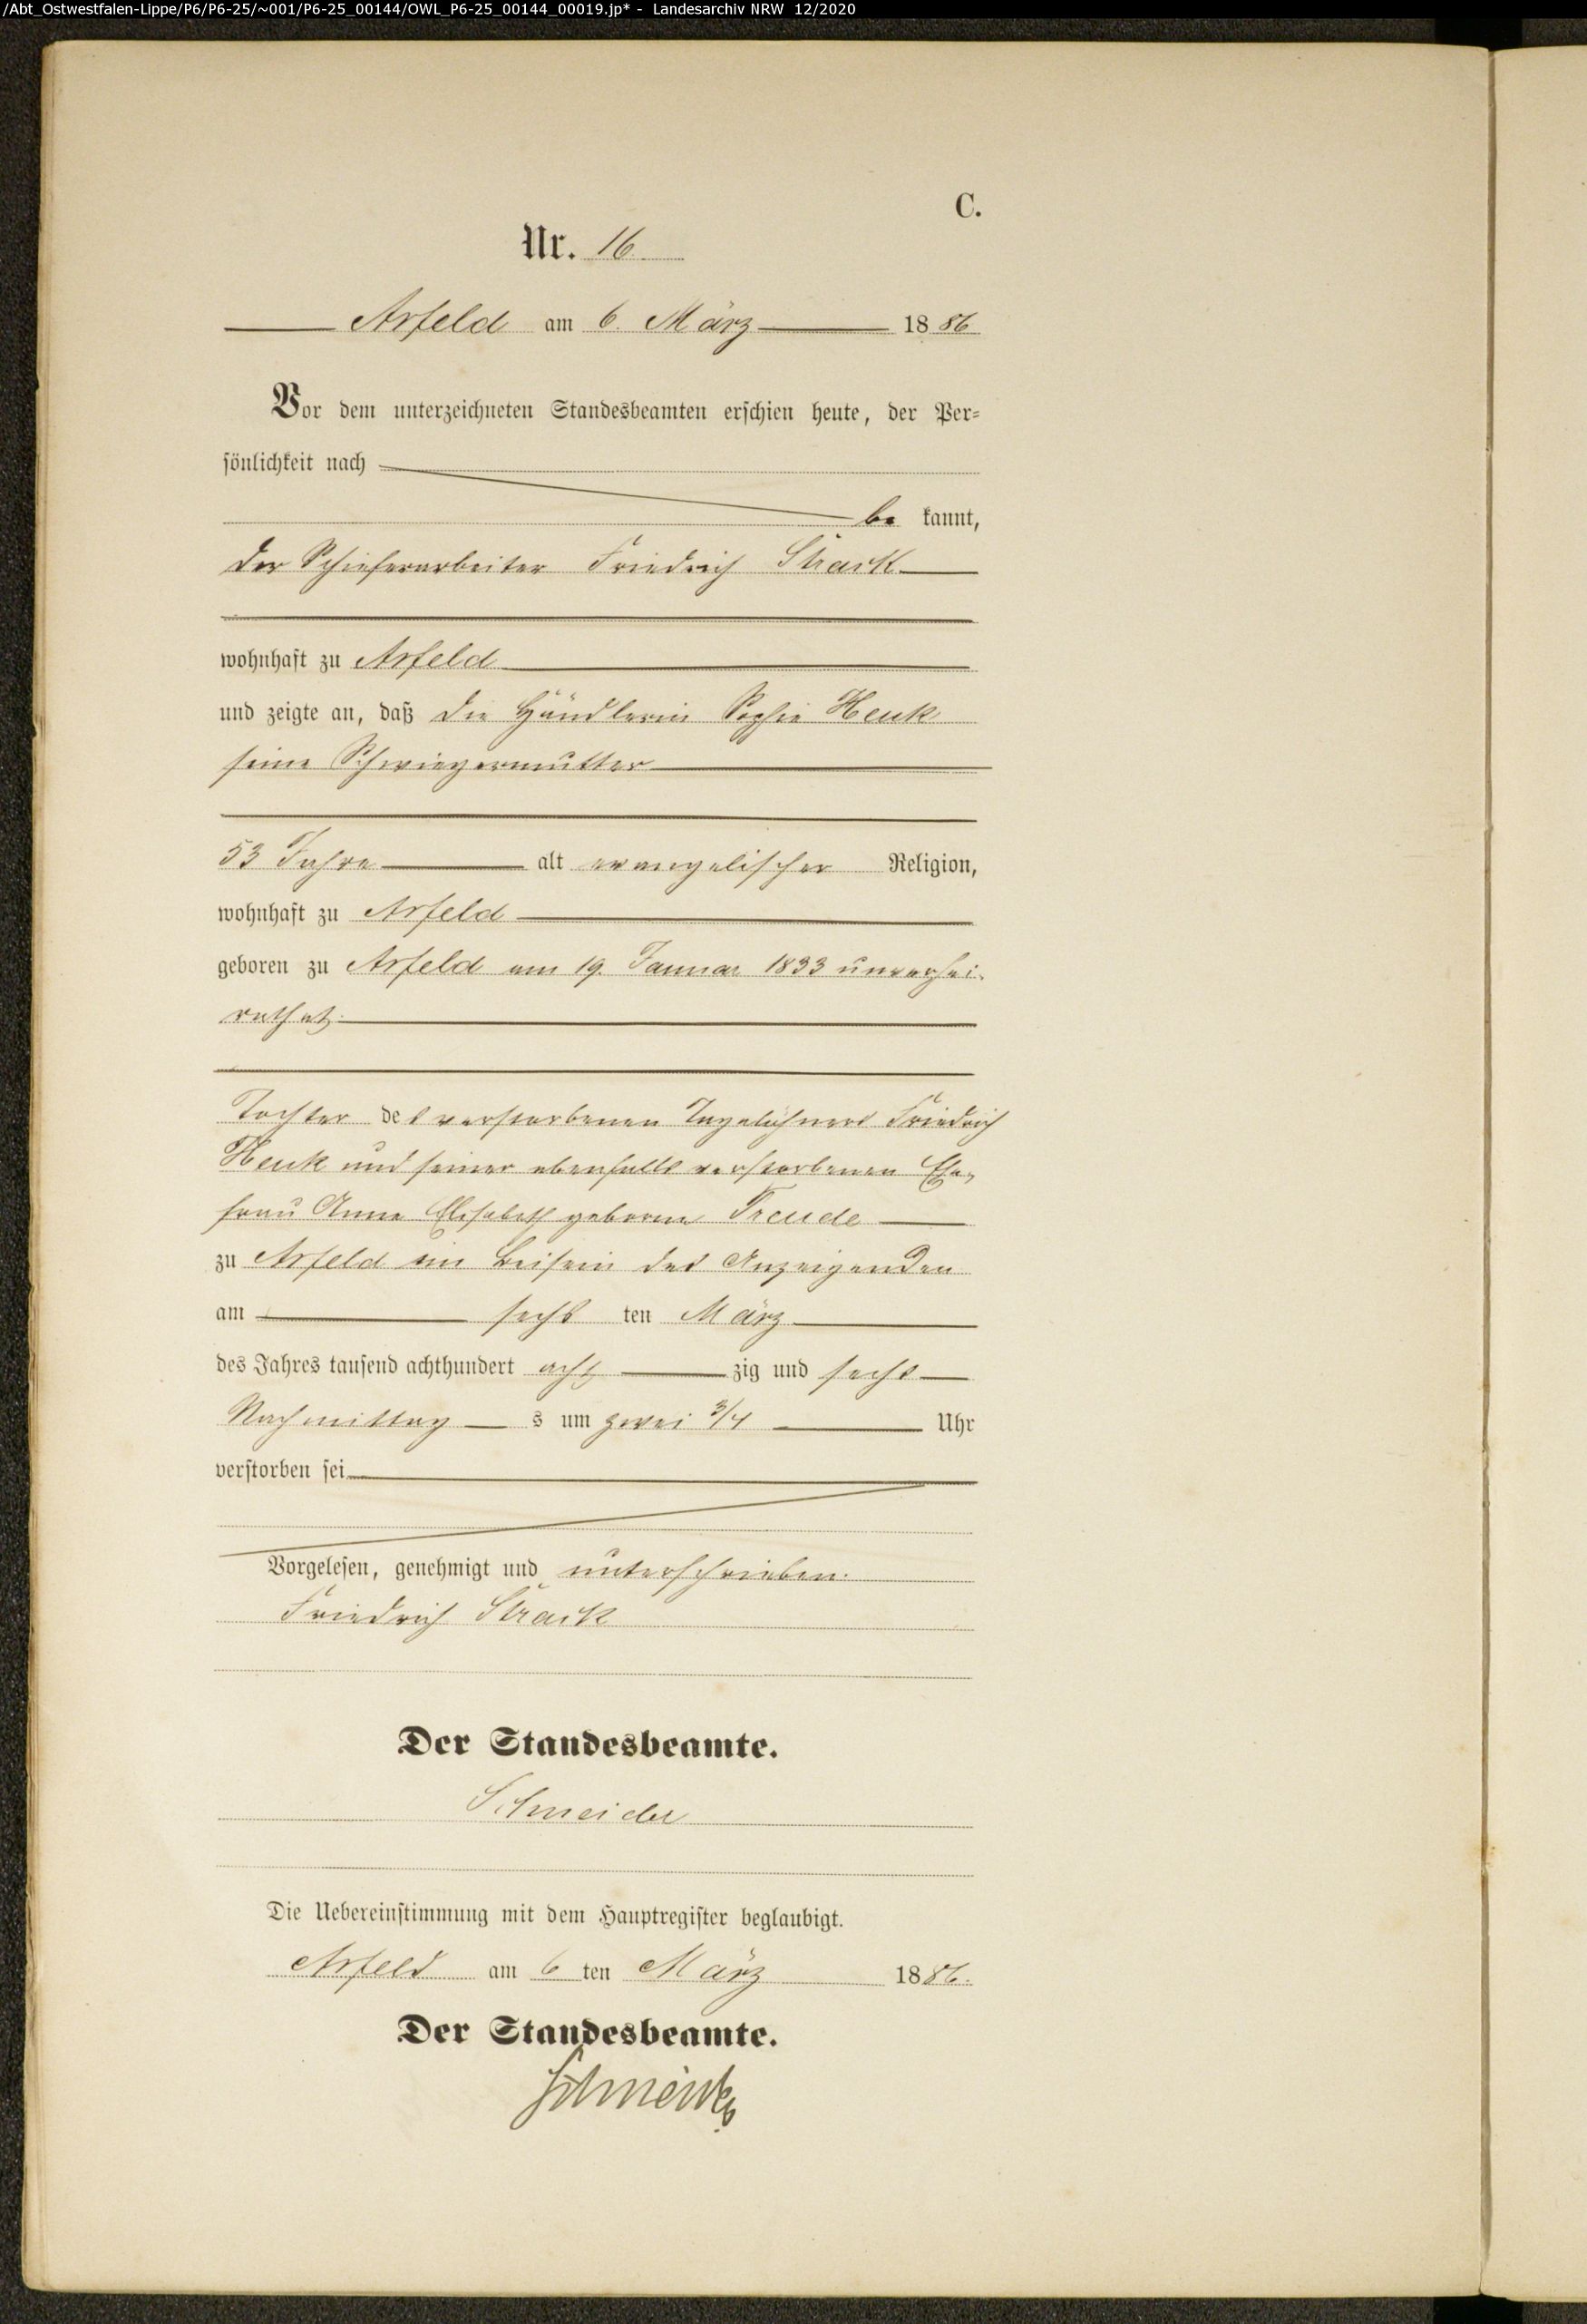 /Abt_Ostwestfalen-Lippe/P6/P6-25/~001/P6-25_00144/OWL_P6-25_00144_00019.jp* - Landesarchiv NRW 12/2020
C.
Nr. 16
Arfeld am 6. März 1886
Vor dem unterzeichneten Standesbeamten erschien heute, der Per-
sönlichkeit nach
be kannt,
der Schieferarbeiter Friedrich Strack
wohnhaft zu Arfeld
und zeigte an, daß die Händlerin Sophie Henk
seine Schwiegermutter
53 Jahre alt evangelischer Religion,
wohnhaft zu Arfeld
geboren zu Arfeld am 19. Januar 1833 unverhei-
rathet.
Tochter des verstorbenen Tagelöhners Friedrich
Henk und seiner ebenfalls verstorbenen Ehe-
frau Anna Elisabeth geborne Treude
zu Arfeld im Beisein des Anzeigenden
am sechs ten März
des Jahres tausend achthundert acht zig und sechs
Nachmittag s um zwei 3/4 Uhr
verstorben sei
Vorgelesen, genehmigt und unterschrieben.
Friedrich Strack
Der Standesbeamte.
Schneider
Die Uebereinstimmung mit dem Hauptregister beglaubigt.
Arfeld am 6 ten März 1886.
Der Standesbeamte.
Schneider